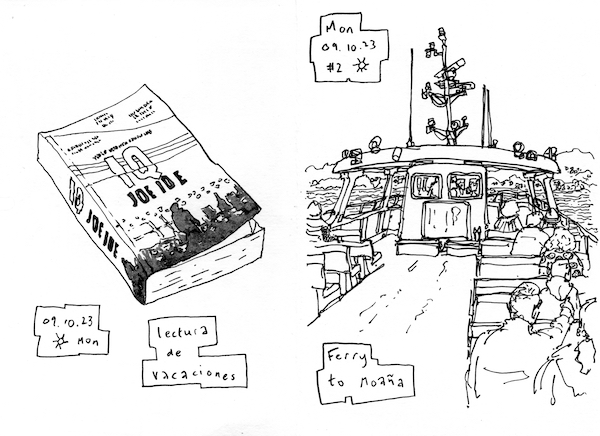 IQ
JOE IDE
IQ
JOE IDE
09.10.23
Mon
lectura
de
vacaciones
Mon
09.10.23
#2
Ferry
to Moaña